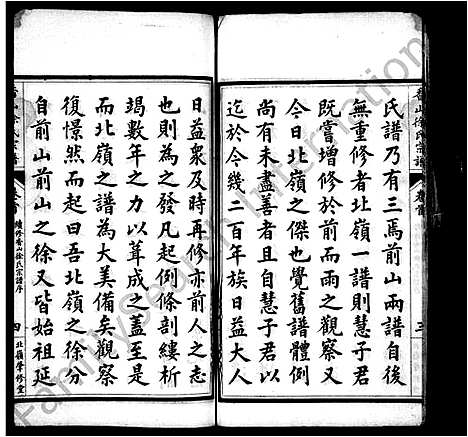 氏譜乃有三焉前山兩譜自後
無重修者北嶺一譜則慧子君
既嘗增修於前而雨之觀察又
今日北嶺之傑也覺舊譜體例
尚有未盡善者且自慧子君以
迄於今幾二百年族日益大人
香山徐氏宗譜
卷首
三
日益衆及時再修亦前人之志
也則為之發凡起例條剖縷析
竭數年之力以葺成之蓋至是
而北嶺之譜為大美備矣觀察
復憬然而起曰吾北嶺之徐分
自前山前山之徐又皆始祖延
續修香山徐氏宗譜序
四
北嶺學修堂
FamilySearch International